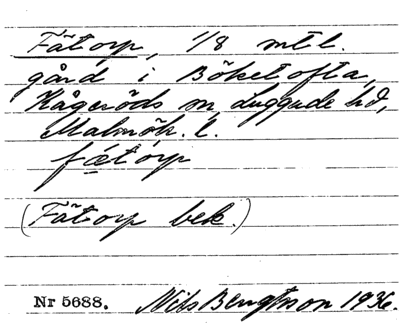 Fätorp, 1/8 mtl.
gård i Böketofta,
Kågeröds sn, Luggude hd,
Malmöh. l.
fætårp
(Fätorp bek.)
Nr 5688. Nils Bengtsson 1936.